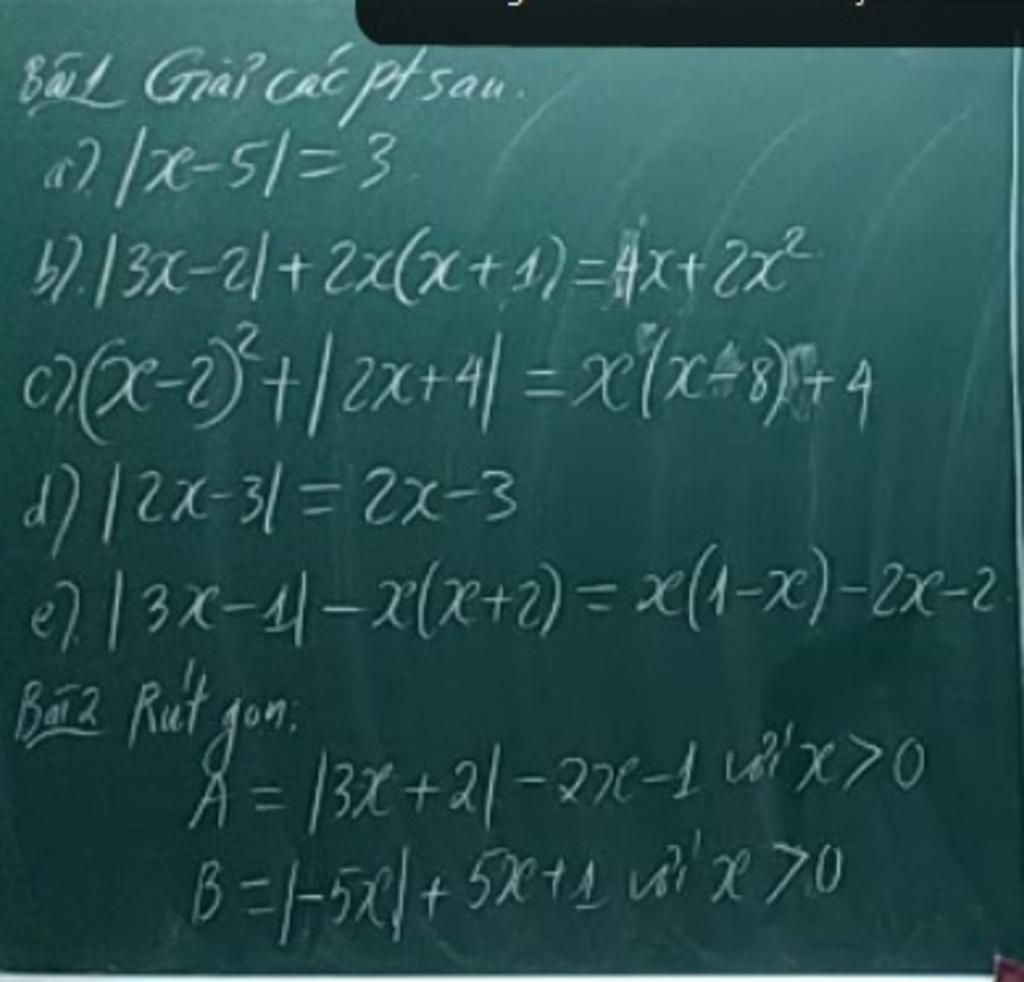 Bài 1 Giải các pt sau.
a) |x-5| = 3
b). |3x-2| + 2x(x+1) = 4x + 2x²
c). (x-2)² + |2x+4| = x(x-8) + 4
d) |2x-3| = 2x-3
e). |3x-1| - x(x+2) = x(1-x) - 2x - 2
Bài 2 Rút gọn:
A = |3x+2| - 2x - 1 với x > 0
B = |-5x| + 5x + 1 với x > 0